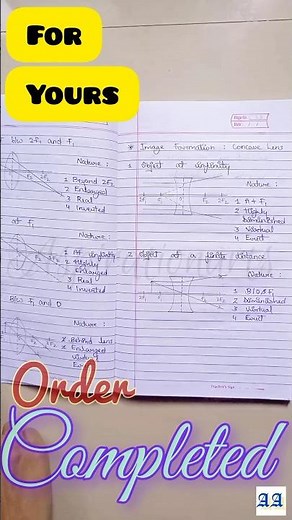 For
Yours
b/w 2F1 and F1
Nature :
1 Beyond 2F2
2 Enlarged
3 Real
4 Inverted
at F1
Nature :
1 At infinity
2 Highly
Enlarged
3 Real
4 Inverted
B/w F1 and O
Nature :
1 Behind lens
2 Enlarged
Virtual
* Image Formation : Concave Lens
1 Object at infinity
Nature :
1 At F1
2 Highly
Diminished
3 Virtual
4 Erect
2 Object at a finite distance
Nature :
1 B/O & F1
2 Diminished
3 Virtual
4 Erect
Order
Completed
AA